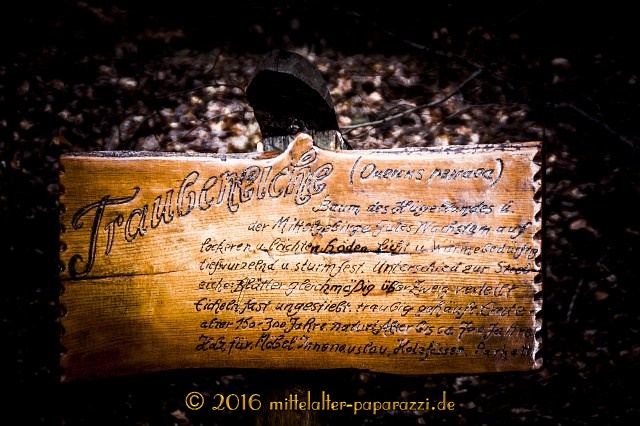 Traubeneiche (Quercus petraea)
Baum des Hügellandes u.
der Mittelgebirge gutes Wachstum auf
lockeren u. leichten Böden Licht u. Wärmebedürftig
tiefwurzelnd u. sturmfest. Unterschied zur Stiel-
eiche: Blätter gleichmäßig über Zweig verteilt
Eicheln fast ungestielt, traubig gehäuft.
alter 150-300 Jahre, natürl. Alter bis ca 700 Jahre
Holz für Möbel Innenausbau, Holzfässer, Parkett
© 2016 mittelalter-paparazzi.de